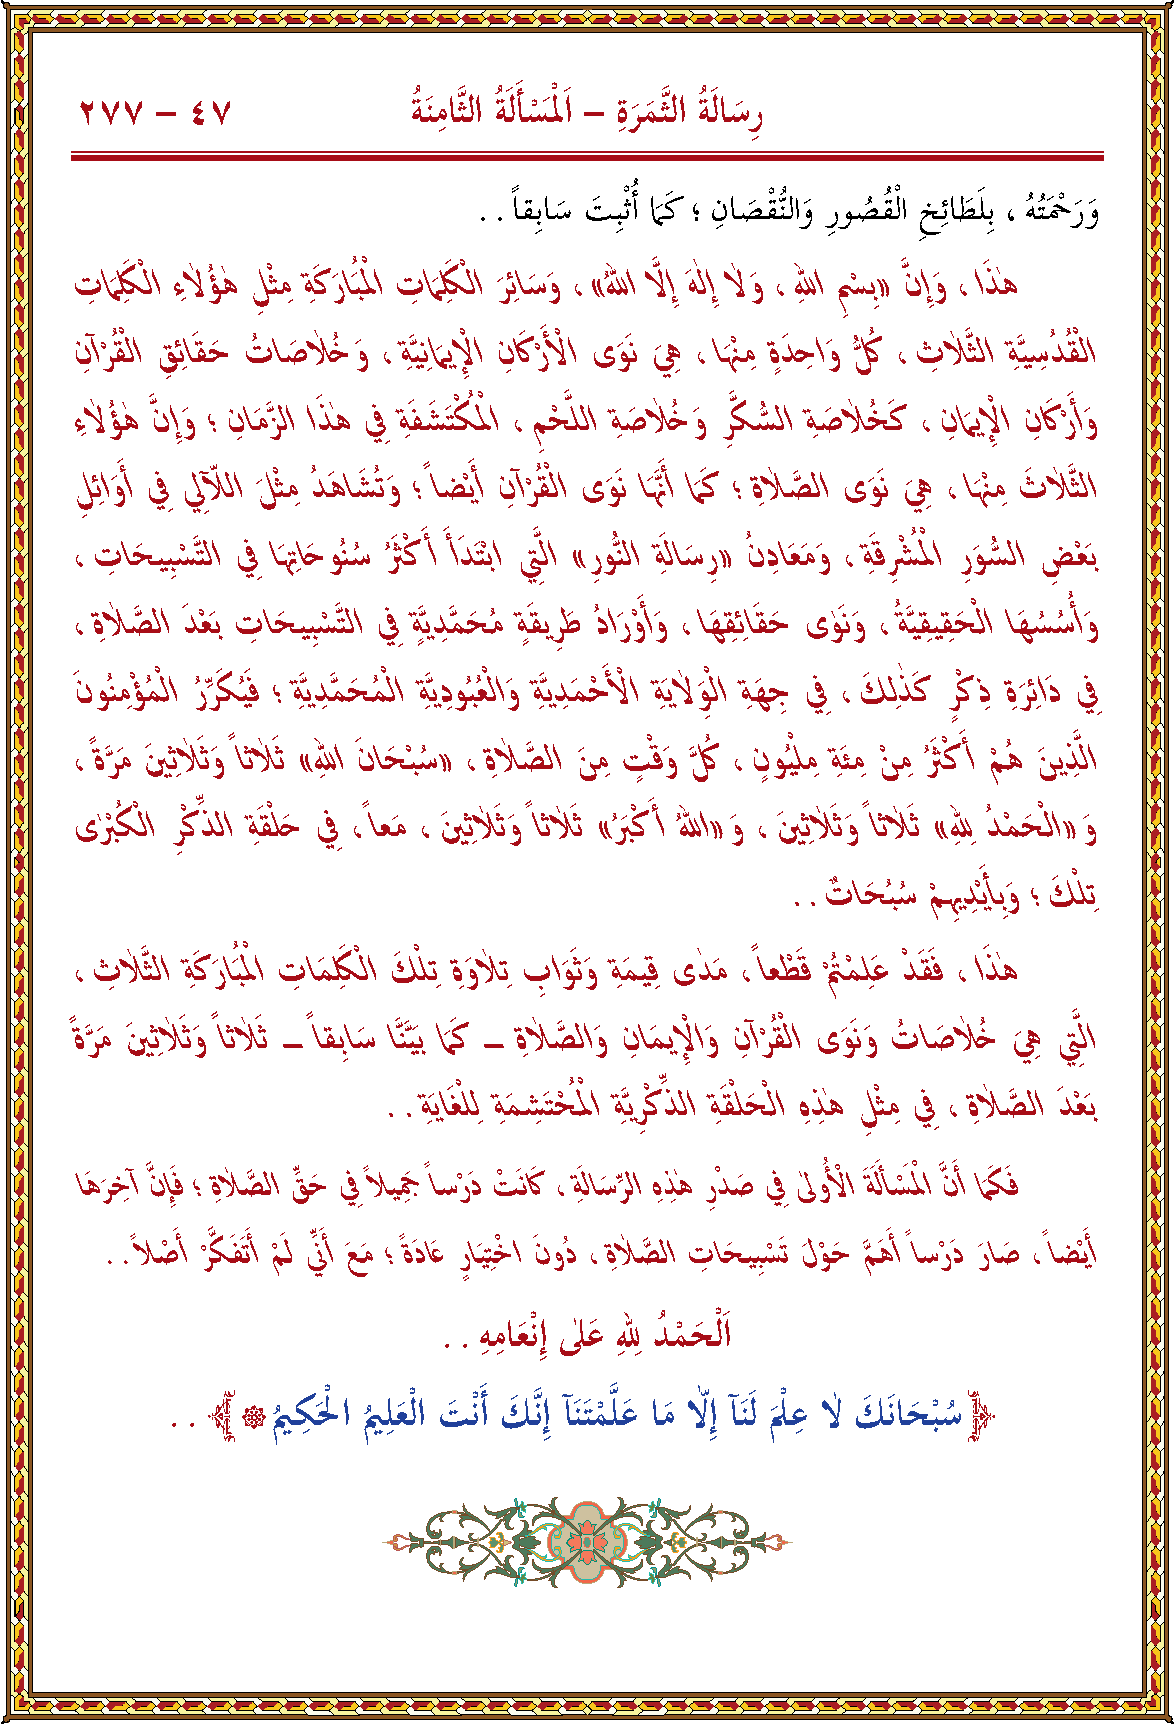 رِسَالَةُ الثَّمَرَةِ – اَلْمَسْأَلَةُ الثَّامِنَةُ ٤٧ – ٢٧٧
وَرَحْمَتُهُ ، بِلَطَائِخِ الْقُصُورِ وَالنُّقْصَانِ ؛ كَمَا أُثْبِتَ سَابِقاً . .
هٰذَا ، وَإِنَّ «بِسْمِ اللهِ ، وَلَا إِلٰهَ إِلَّا اللهُ» ، وَسَائِرَ الْكَلِمَاتِ الْمُبَارَكَةِ مِثْلِ هٰؤُلَاءِ الْكَلِمَاتِ
الْقُدُسِيَّةِ الثَّلَاثِ ، كُلُّ وَاحِدَةٍ مِنْهَا ، هِيَ نَوَى الْأَرْكَانِ الْإِيمَانِيَّةِ ، وَخُلَاصَاتُ حَقَائِقِ الْقُرْآنِ
وَأَرْكَانِ الْإِيمَانِ ، كَخُلَاصَةِ السُّكَّرِ وَخُلَاصَةِ اللَّحْمِ ، الْمُكْتَشَفَةِ فِي هٰذَا الزَّمَانِ ؛ وَإِنَّ هٰؤُلَاءِ
الثَّلَاثَ مِنْهَا ، هِيَ نَوَى الصَّلَاةِ ؛ كَمَا أَنَّهَا نَوَى الْقُرْآنِ أَيْضاً ؛ وَتُشَاهَدُ مِثْلَ اللَّآلِي فِي أَوَائِلِ
بَعْضِ السُّوَرِ الْمُشْرِقَةِ ، وَمَعَادِنُ «رِسَالَةِ النُّورِ» الَّتِي ابْتَدَأَ أَكْثَرُ سُنُوحَاتِهَا فِي التَّسْبِيحَاتِ ،
وَأُسُسُهَا الْحَقِيقِيَّةُ ، وَنَوٰى حَقَائِقِهَا ، وَأَوْرَادُ طَرِيقَةٍ مُحَمَّدِيَّةٍ فِي التَّسْبِيحَاتِ بَعْدَ الصَّلَاةِ ،
فِي دَائِرَةِ ذِكْرٍ كَذٰلِكَ ، فِي جِهَةِ الْوِلَايَةِ الْأَحْمَدِيَّةِ وَالْعُبُودِيَّةِ الْمُحَمَّدِيَّةِ ؛ فَيُكَرِّرُ الْمُؤْمِنُونَ
الَّذِينَ هُمْ أَكْثَرُ مِنْ مِئَةِ مِلْيُونٍ ، كُلَّ وَقْتٍ مِنَ الصَّلَاةِ ، «سُبْحَانَ اللهِ» ثَلَاثاً وَثَلَاثِينَ مَرَّةً ،
وَ«الْحَمْدُ لِلهِ» ثَلَاثاً وَثَلَاثِينَ ، وَ«اللهُ أَكْبَرُ» ثَلَاثاً وَثَلَاثِينَ ، مَعاً ، فِي حَلْقَةِ الذِّكْرِ الْكُبْرٰى
تِلْكَ ؛ وَبِأَيْدِيهِمْ سُبُحَاتٌ . .
هٰذَا ، فَقَدْ عَلِمْتُمْ قَطْعاً ، مَدٰى قِيمَةِ وَثَوَابِ تِلَاوَةِ تِلْكَ الْكَلِمَاتِ الْمُبَارَكَةِ الثَّلَاثِ ،
الَّتِي هِيَ خُلَاصَاتُ وَنَوَى الْقُرْآنِ وَالْإِيمَانِ وَالصَّلَاةِ – كَمَا بَيَّنَّا سَابِقاً – ثَلَاثاً وَثَلَاثِينَ مَرَّةً
بَعْدَ الصَّلَاةِ ، فِي مِثْلِ هٰذِهِ الْحَلْقَةِ الذِّكْرِيَّةِ الْمُحْتَشِمَةِ لِلْغَايَةِ . .
فَكَمَا أَنَّ الْمَسْأَلَةَ الْأُولٰى فِي صَدْرِ هٰذِهِ الرِّسَالَةِ ، كَانَتْ دَرْساً جَمِيلاً فِي حَقِّ الصَّلَاةِ ؛ فَإِنَّ آخِرَهَا
أَيْضاً ، صَارَ دَرْساً أَهَمَّ حَوْلَ تَسْبِيحَاتِ الصَّلَاةِ ، دُونَ اخْتِيَارٍ عَادَةً ؛ مَعَ أَنِّي لَمْ أَتَفَكَّرْ أَصْلاً . .
اَلْحَمْدُ لِلهِ عَلٰى إِنْعَامِهِ . .
﴿سُبْحَانَكَ لَا عِلْمَ لَنَآ إِلَّا مَا عَلَّمْتَنَآ إِنَّكَ أَنْتَ الْعَلِيمُ الْحَكِيمُ﴾ . .